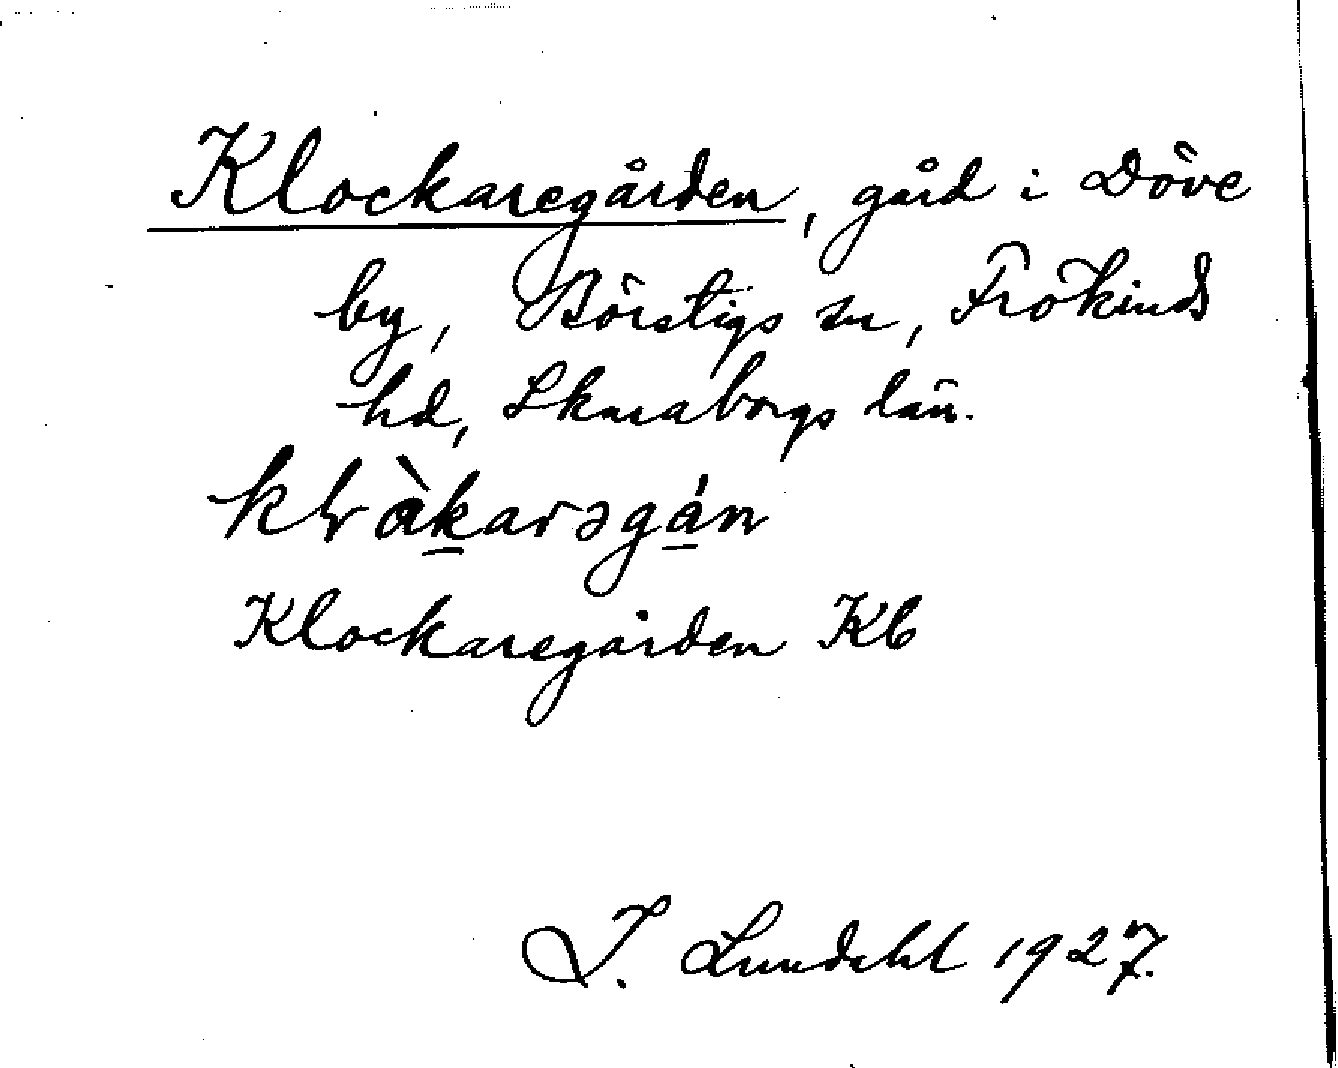 Klockaregården, gård i Döve
by, Börstigs sn, Frökinds
hd, Skaraborgs län.
klròkarəgán
Klockaregården Kb
I. Lundahl 1927.